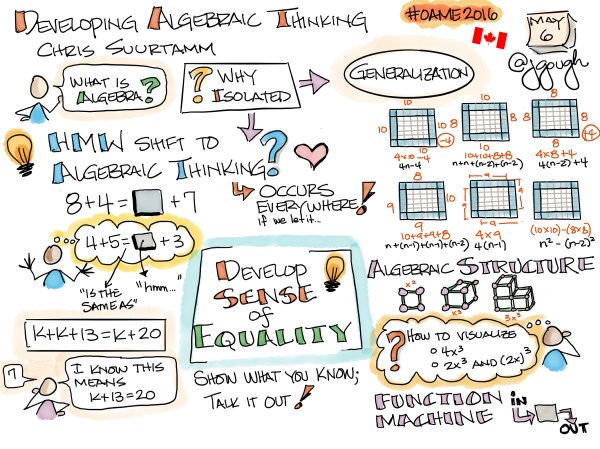 DEVELOPING ALGEBRAIC THINKING
CHRIS SUURTAMM
#OAME2016
MAY
6
@jgough
WHAT IS
ALGEBRA?
? WHY
ISOLATED
GENERALIZATION
HMW SHIFT TO
ALGEBRAIC THINKING?
8+4=□+7
4+5=□+3
"IS THE
SAME AS"
"hmm..."
K+K+13=K+20
7
I KNOW THIS
MEANS
K+13=20
↳ OCCURS
EVERYWHERE!
if we let it...
DEVELOP
SENSE
of
EQUALITY
SHOW WHAT YOU KNOW;
TALK IT OUT!
10
10
10
10
-4
4×10-4
4n-4
10
8
8
10
10+10+8+8
n+n+(n-2)+(n-2)
8
8
8
8
+4
4×8+4
4(n-2)+4
8
9
9
10
10+9+9+8
n+(n-1)+(n-1)+(n-2)
9
9
9
9
4×9
4(n-1)
(10×10)-(8×8)
n²-(n-2)²
ALGEBRAIC STRUCTURE
x²
x³
3x³
? HOW TO VISUALIZE
○ 4x³
○ 2x³ AND (2x)³
FUNCTION
MACHINE
IN
OUT